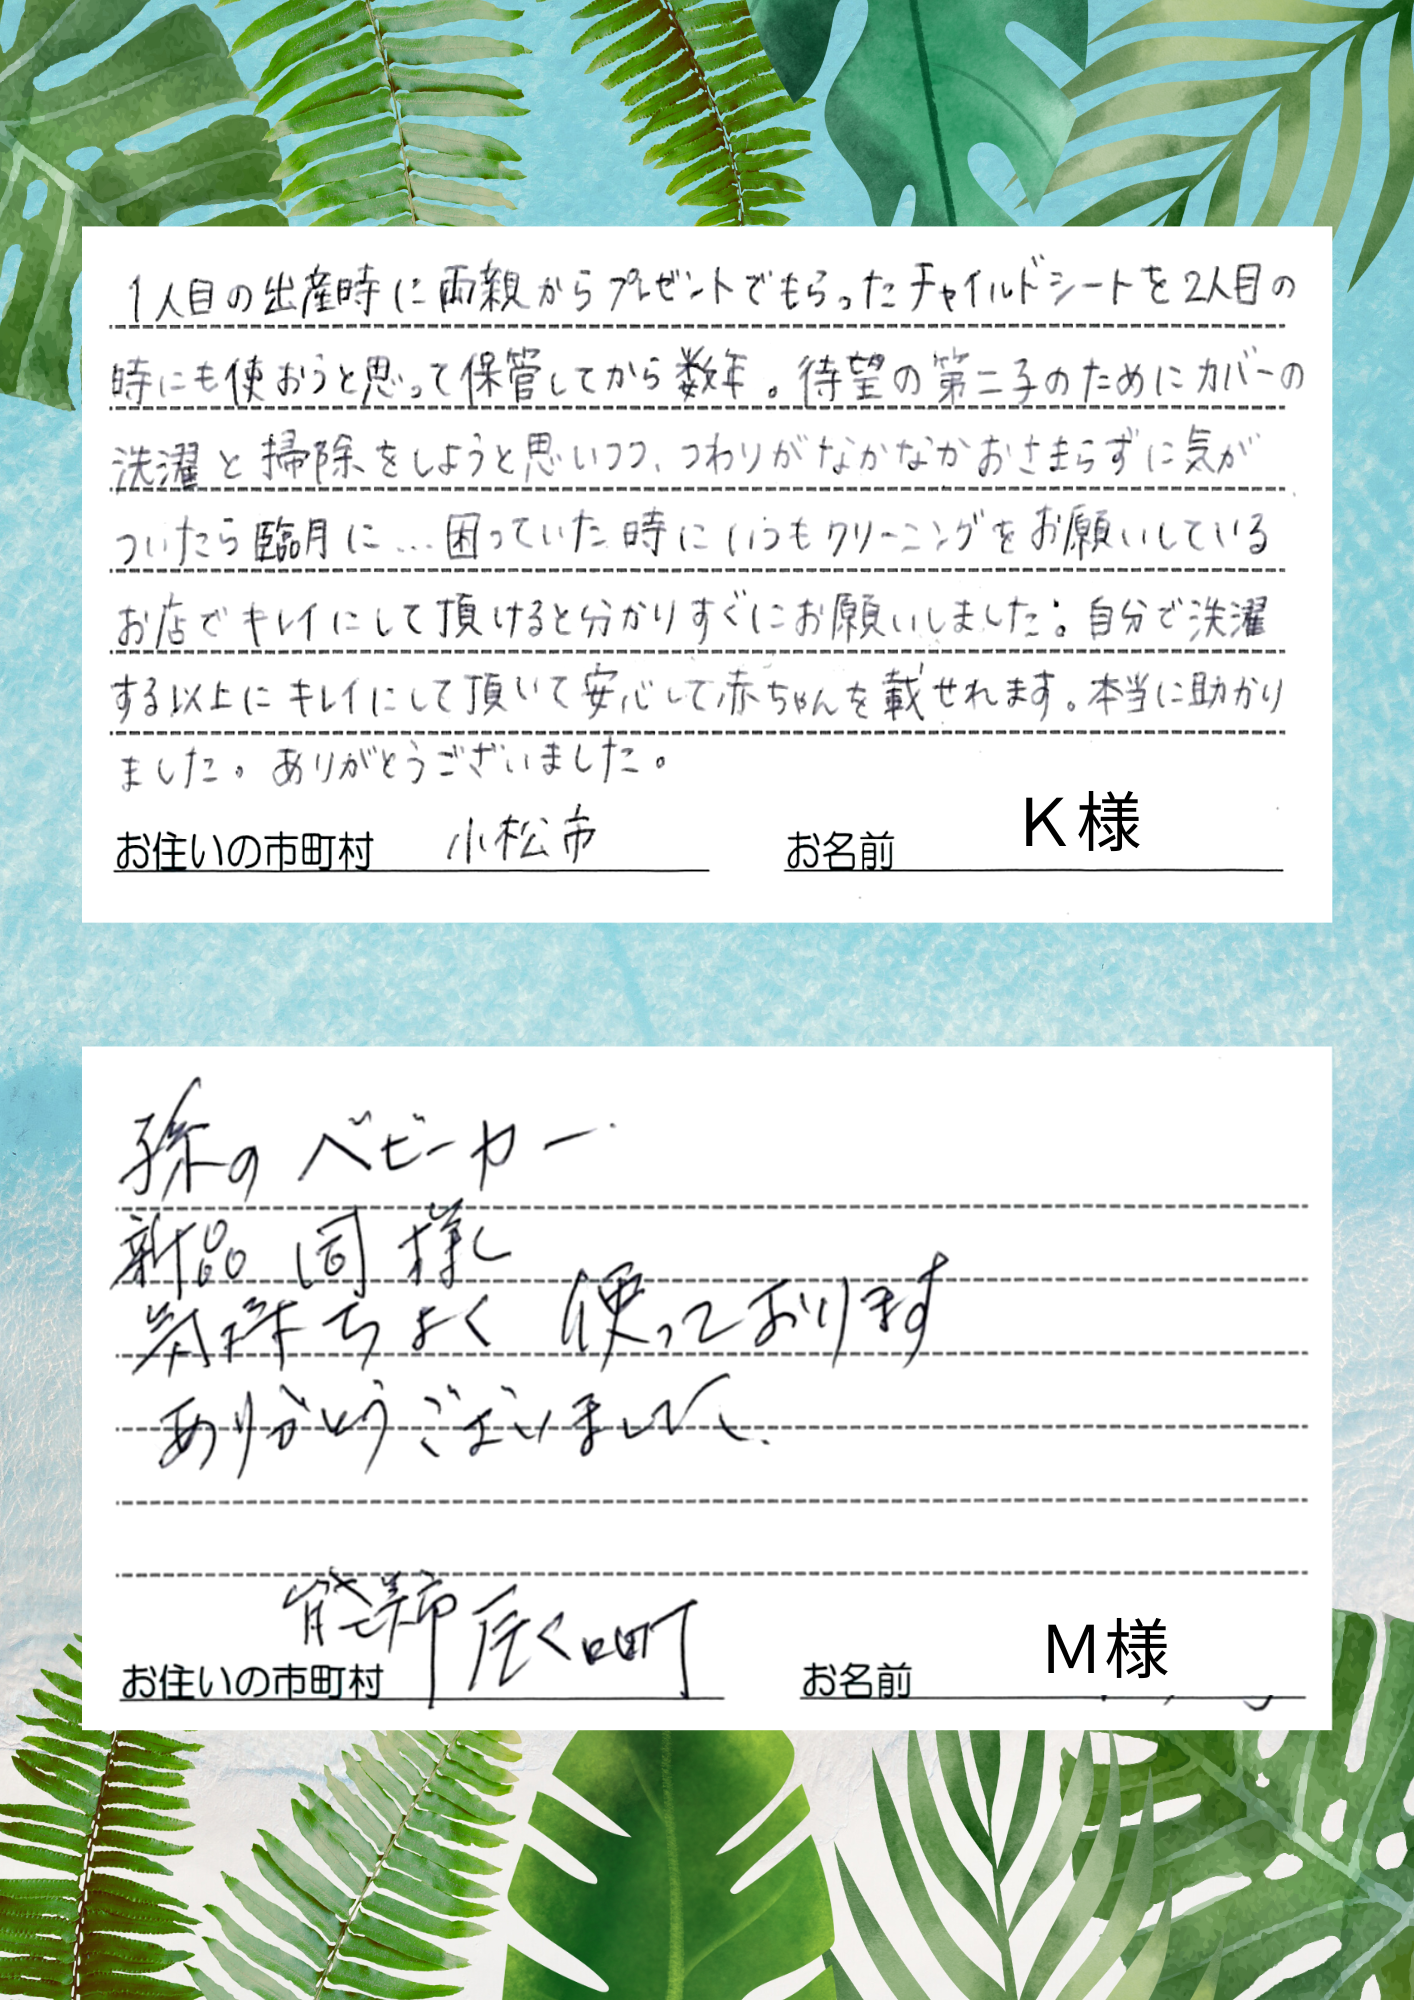 1人目の出産時に両親からプレゼントでもらったチャイルドシートを2人目の
時にも使おうと思って保管してから数年。待望の第二子のためにカバーの
洗濯と掃除をしようと思いつつ、つわりがなかなかおさまらずに気が
ついたら臨月に...困っていた時にいつもクリーニングをお願いしている
お店でキレイにして頂けると分かりすぐにお願いしました。自分で洗濯
する以上にキレイにして頂いて安心して赤ちゃんを載せれます。本当に助かり
ました。ありがとうございました。
お住いの市町村 小松市 お名前 K様
孫のベビーカー
新品同様に
気持ちよく使っております
ありがとうございました.
お住いの市町村 能美市辰口町 お名前 M様